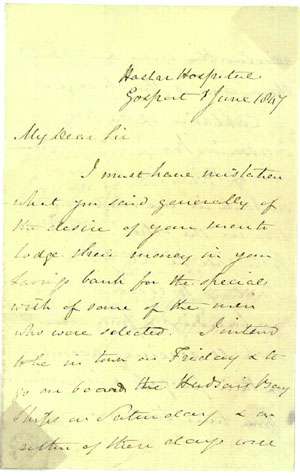 Haslar Hospital
Gosport 1 June 1847
My Dear Sir
I must have mistaken
what you said generally of
the desire of your men to
lodge their money in your
savings bank for the special
wish of some of the men
who were selected. I intend
to be in town on Friday & to
go on board the Hudson's Bay
Ships on Saturday, & on
either of these days will